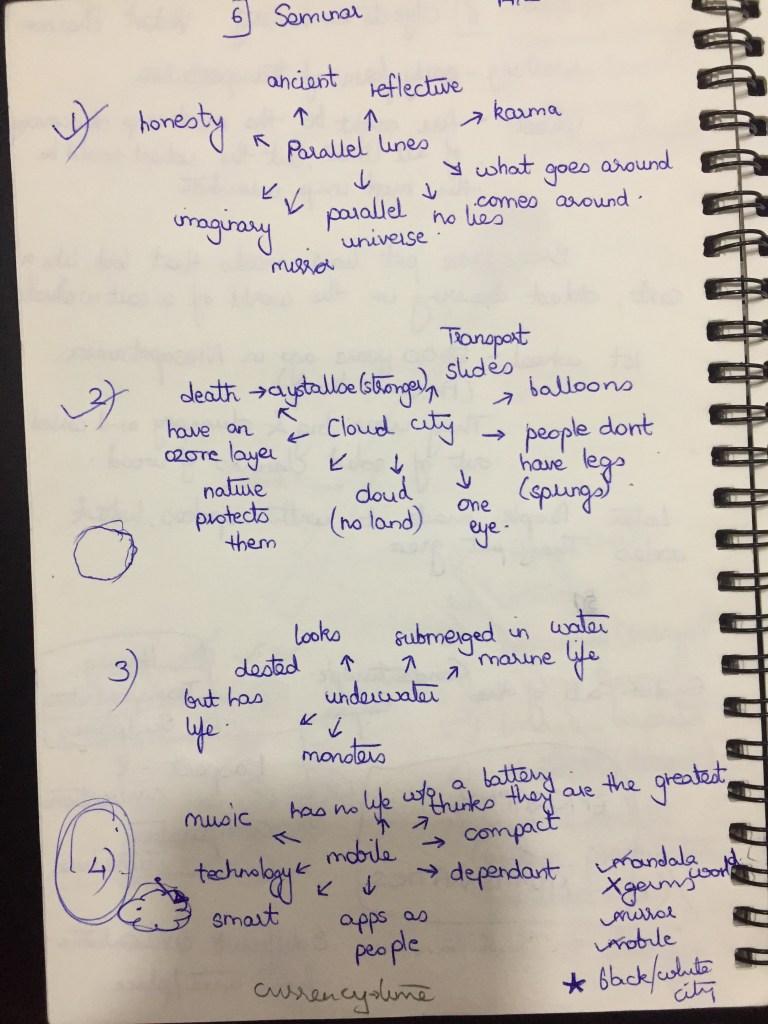 6] Seminar
ancient reflective
1) honesty → karma
Parallel lines
what goes around
comes around.
imaginary parallel no lies
universe.
mirror
Transport
slides
2) death → crystallse (stronger) balloons
have an Cloud city people dont
ozone layer have legs
nature cloud one (springs)
protects (no land) eye.
them
looks submerged in water
3) dested marine life
but has underwater
life
monsters
music has no life w/o a battery
thinks they are the greatest
4) mobile compact
technology dependant
smart apps as
people
mandala world
x germs
mirror
mobile
★ black/white
city
currency → time